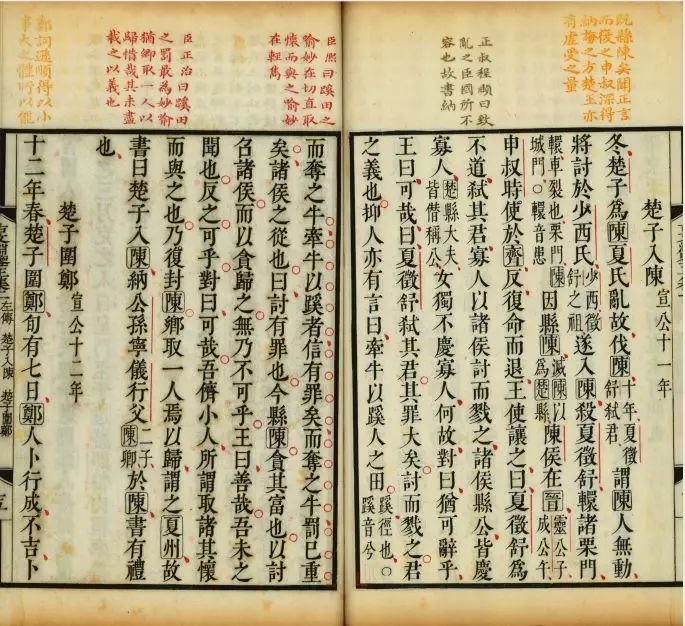 既縣陳矣聞正言
而復之申叔深得
納誨之方楚王亦
有虛受之量
正叔程頤曰致
亂之臣國所不
容也故書納
楚子入陳 宣公十一年
冬楚子爲陳夏氏亂故伐陳十年夏徵舒弑君謂陳人無動
將討於少西氏少西徵舒之祖遂入陳殺夏徵舒轘諸栗門
轘車裂也栗門陳城門○轘音患因縣陳滅陳以爲楚縣陳侯在晉靈公子成公午
申叔時使於齊反復命而退王使讓之曰夏徵舒爲
不道弑其君寡人以諸侯討而戮之諸侯縣公皆慶
寡人楚縣大夫皆僭稱公女獨不慶寡人何故對曰猶可辭乎
王曰可哉曰夏徵舒弑其君其罪大矣討而戮之君
之義也抑人亦有言曰牽牛以蹊人之田蹊徑也○蹊音兮
臣熙曰蹊田之
喻妙在切直取
懷而與之喻妙
在輕雋
臣正治曰蹊田
之罰最為妙喻
猶鄉取一人以
歸惜哉其未盡
載之以義也
鄭詞遜順得以小
事大之體所以能
而奪之牛牽牛以蹊者信有罪矣而奪之牛罰已重
矣諸侯之從也曰討有罪也今縣陳貪其富也以討
召諸侯而以貪歸之無乃不可乎王曰善哉吾未之
聞也反之可乎對曰可哉吾儕小人所謂取諸其懷
而與之也乃復封陳鄉取一人焉以歸謂之夏州故
書曰楚子入陳納公孫寧儀行父二子陳卿於陳書有禮
也
楚子圍鄭 宣公十二年
十二年春楚子圍鄭旬有七日鄭人卜行成不吉卜
左傳 楚子入陳 楚子圍鄭